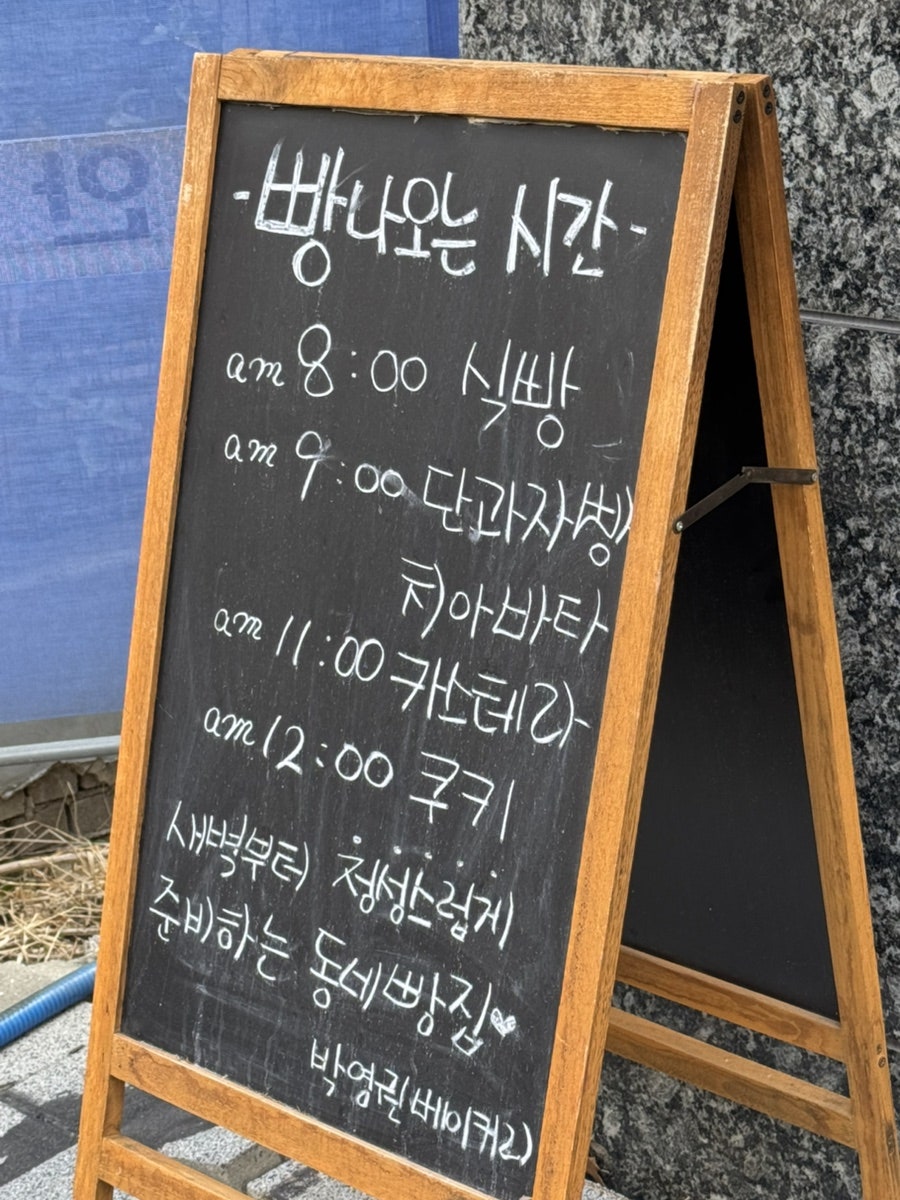 - 빵나오는 시간 -
am 8:00 식빵
am 9:00 단과자빵
치아바타
am 11:00 카스테라
am 12:00 쿠키
새벽부터 정성스럽게
준비하는 동네빵집♥
박영권베이커리